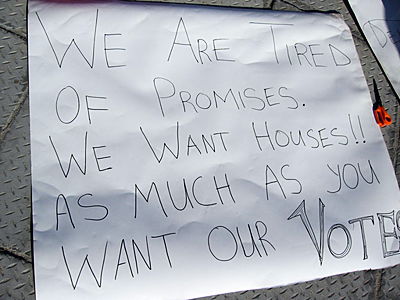 WE ARE TIRED
OF PROMISES.
WE WANT HOUSES!!
AS MUCH AS YOU
WANT OUR VOTES